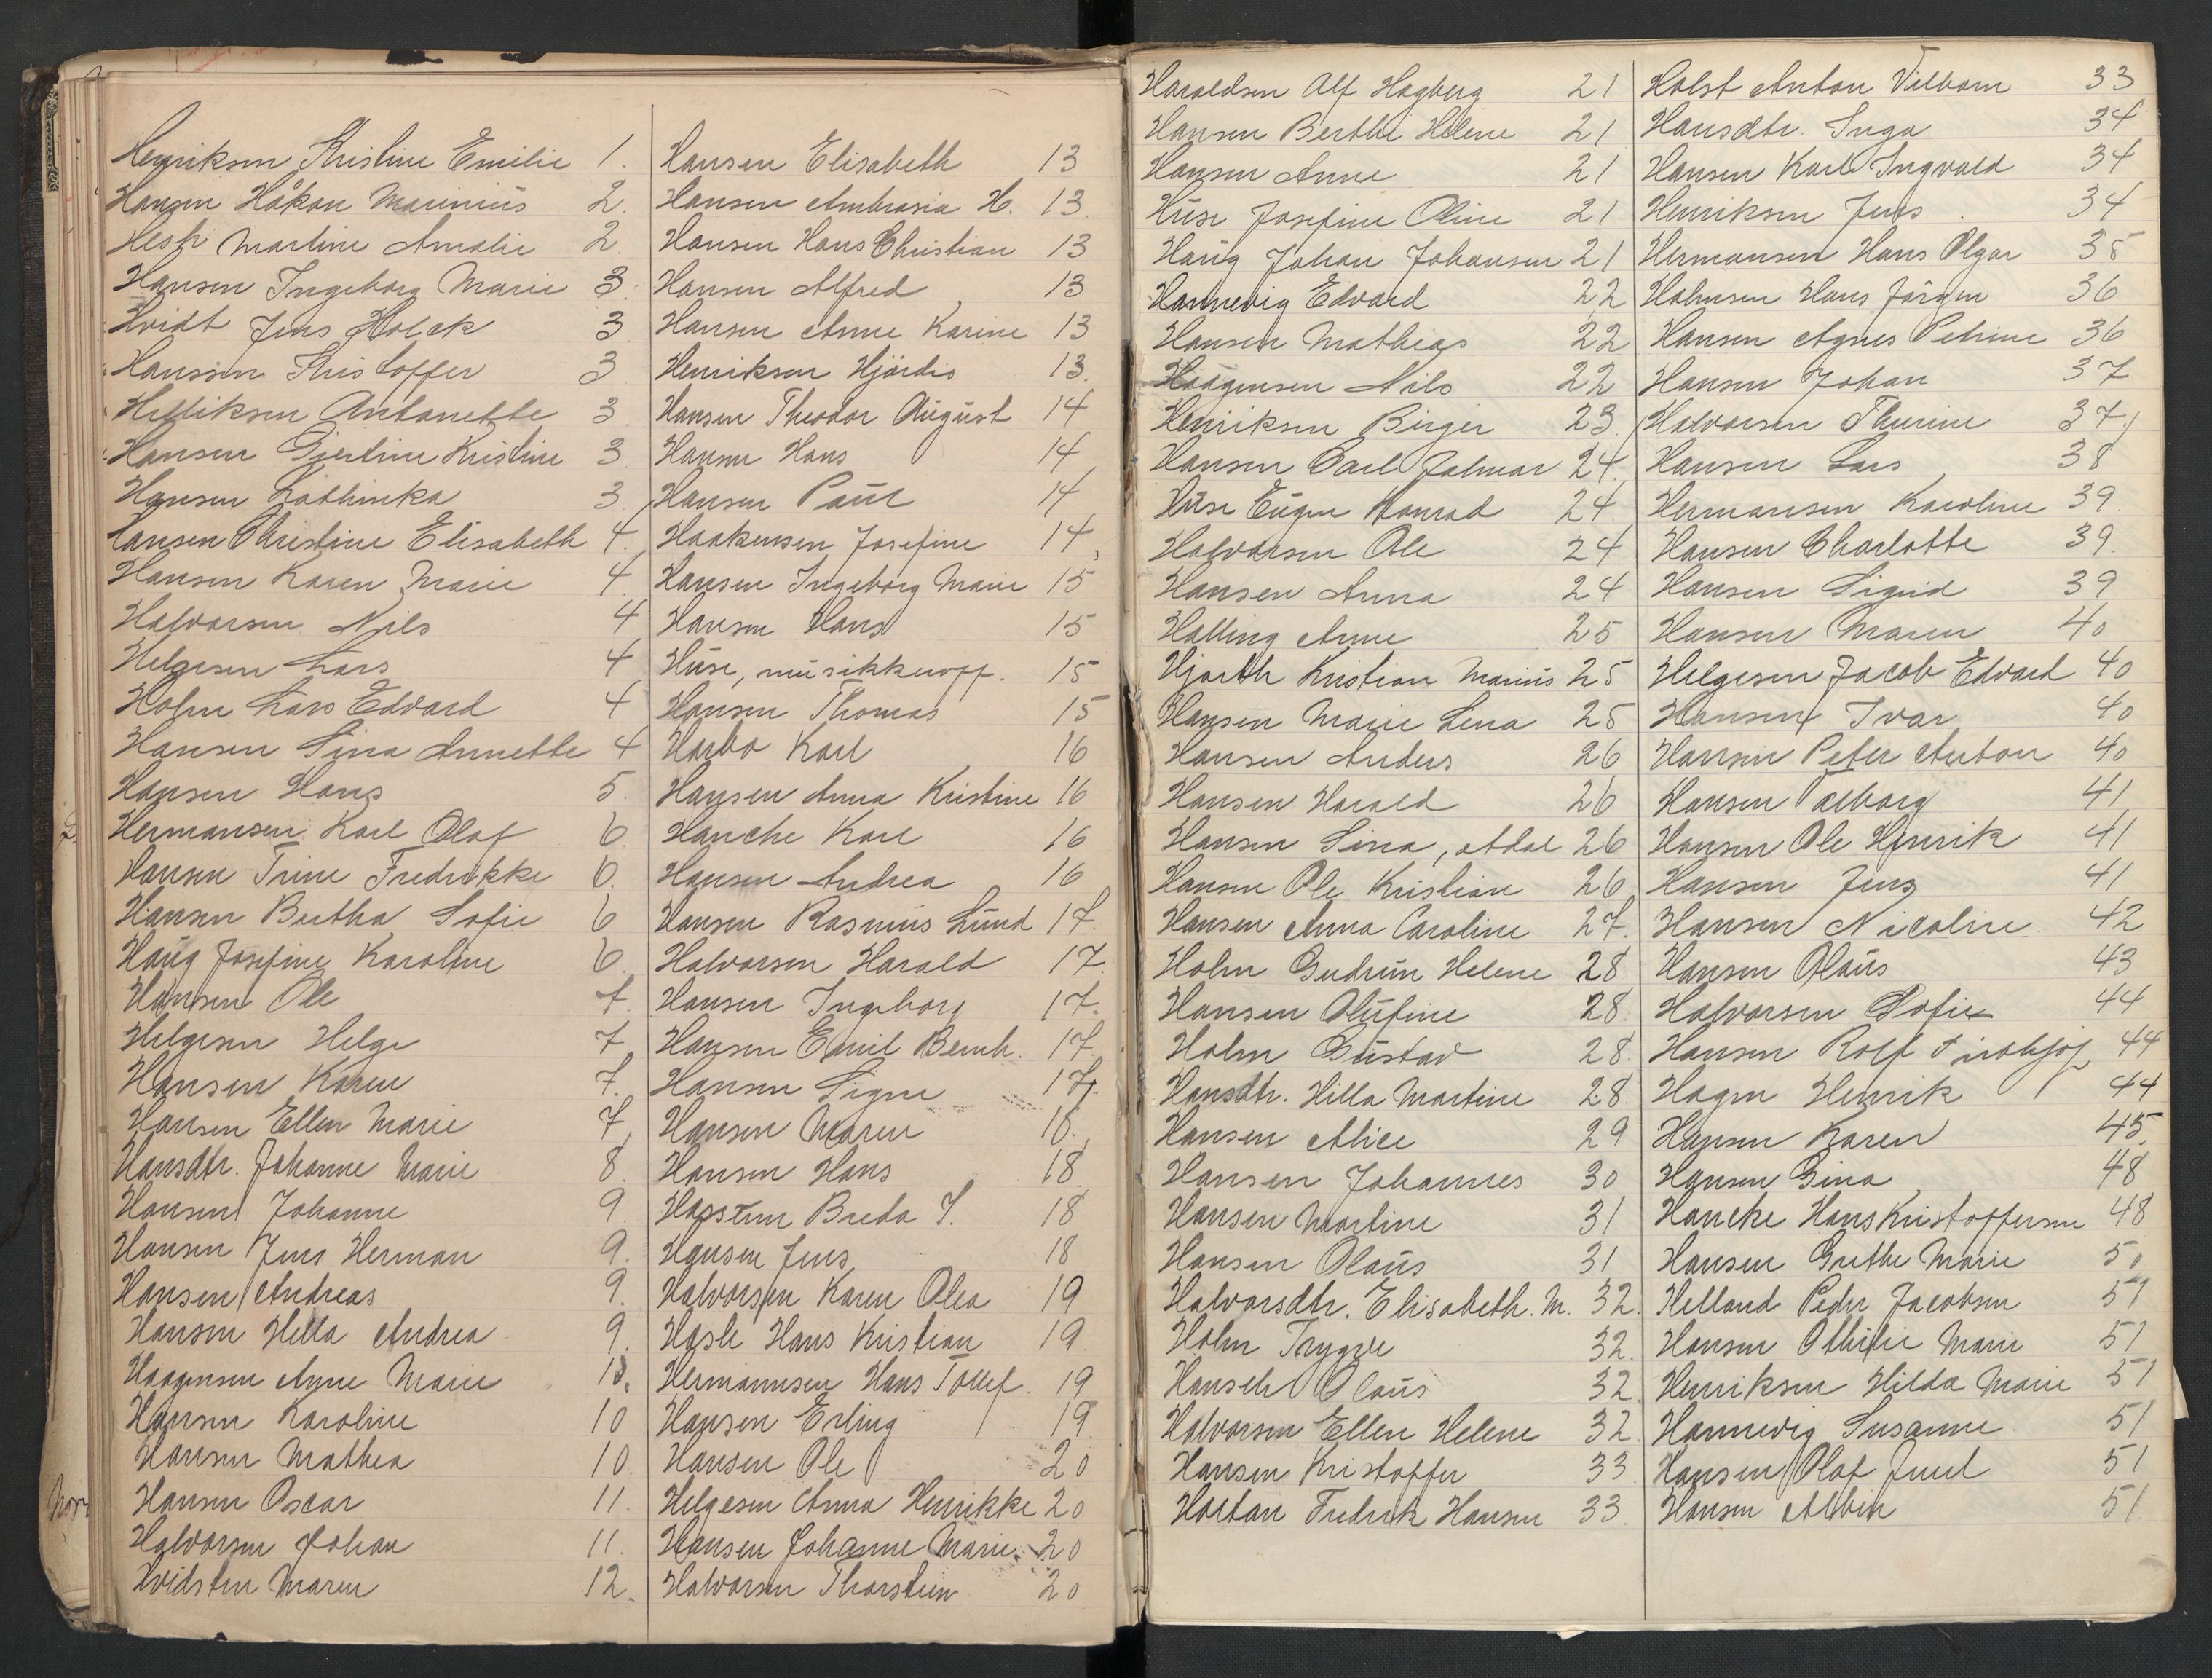 Henriksen Kristine Emilie 1.
Hansen Håkon Marinius 2.
Hesk Martine Amalie 2.
Hansen Ingeborg Marie 3.
Hvidt Jens Holck 3
Hanssen Kristoffer 3
Henriksen Antonette 3
Hansen Gjertine Kristine 3
Hansen Kathinka 3
Hansen Christine Elisabeth 4.
Hansen Karen Marie 4.
Halvorsen Nils 4
Helgesen Lars 4
Holm Lars Edvard 4
Hansen Sina Annette 4
Hansen Hans 5.
Hermansen Karl Olaf 6.
Hansen Trine Fredrikke 6.
Hansen Bertha Sofie 6
Haug Josefine Karoline 6
Hansen Ole 7.
Helgesen Helge 7
Hansen Karen 7.
Hansen Ellen Marie 7
Hansdtr. Johanne Marie 8.
Hansen Johanne 9.
Hansen Jens Herman 9.
Hansen Andreas 9.
Hansen Hella Andrea 9.
Haagensen Anne Marie 10.
Hansen Karoline 10
Hansen Mathea 10.
Hansen Oscar 11.
Halvorsen Johan 11.
Hvidsten Maren 12.
Hansen Elisabeth 13
Hansen Ambrosia H. 13.
Hansen Hans Christian 13
Hansen Alfred 13
Hansen Anne Karine 13
Henriksen Hjördis 13.
Hansen Theodor August 14
Hansen Hans 14
Hansen Paul 14
Haakensen Josefine 14
Hansen Ingeborg Marie 15
Hansen Hans 15
Huse, musikkuoff. 15
Hansen Thomas 15
Harbo Karl 16
Hansen Anna Kristine 16
Hanche Karl 16
Hansen Andrea 16
Hansen Rasmus Lund 17.
Halvorsen Harald 17.
Hansen Ingeborg 17.
Hansen Emil Bernh. 17
Hansen Signe 17.
Hansen Maren 18.
Hansen Hans 18.
Breda 18
Hansen Jens 18
Halvorsen Karen Olea 19
Hasle Hans Kristian 19.
Hermannsen Hans Tollef. 19
Hansen Erling 19.
Hansen Ole 20
Helgesen Anna Henrikke 20
Hansen Johanne Marie. 20
Halvorsen Thorstein 20
Haraldsen Alf Hagberg 21
Hansen Berthe Helene 21
Hansen Anne 21
Huse Josefine Oline 21
Haug Johan Johansen 21
Hannevig Edvard 22
Hansen Mathias 22
Haagensen Nils 22
Henriksen Birger 23.
Hansen Carl Jalmar 24.
Huse Eugen Konrad 24
Halvorsen Ole 24
Hansen Anna 24
Halling Anne 25
Hjorth Kristian Marius 25
Hansen Marie Lena 25
Hansen Anders 26
Hansen Harald 26
Hansen Sina, 26
Hansen Ole Kristian 26
Hansen Anna Caroline 27.
Holm Gudrun Helene 28
Hansen Olufine 28.
Holm Gustav 28.
Hansdtr. Hilla Martine 28.
Hansen Alice 29
Hansen Johannes 30
Hansen Martine 31
Hansen Olaus 31
Halvorsdtr. Elisabeth. M. 32.
Holm Trygve 32.
Hansen Olaus 32.
Halvorsen Ellen Helene 32.
Hansen Kristoffer 33
Fredrik Hansen 33.
Holst Anton Vilborn 33
Hansdtr. Inga 34
Hansen Karl Ingvald 34
Henriksen Jens 34
Hermansen Hans Olgar 35
Holmsen Hans Jörgen 36
Hansen Agnes Petrine 36
Hansen Johan 37
Halvorsen Thurine 37.
Hansen Lars 38
Hermansen Karoline 39
Hansen Charlotte 39.
Hansen Sigrid 39
Hansen Maren 40
Helgesen Jacob Edvard 40
Hansen Ivar 40
Hansen Peter Anton 40
Hansen Valborg 41
Hansen Ole Henrik 41
Hansen Jens 41
Hansen Nicoline. 42
Hansen Olaus 43
Halvorsen Sofie 44
Hansen Rolf Firthjof 44
Hagen Henrik 44
Hansen Karen 45.
Hansen Gina 48
Hancke Hans Kristoffersen 48
Hansen Grethe Marie 50
Helland Peder Jacobsen 51
Hansen Othilie Marie 51
Henriksen Hilda Marie 51
Hannevig Susanne 51
Hansen Olaf Juul 51
Hansen Albin 51